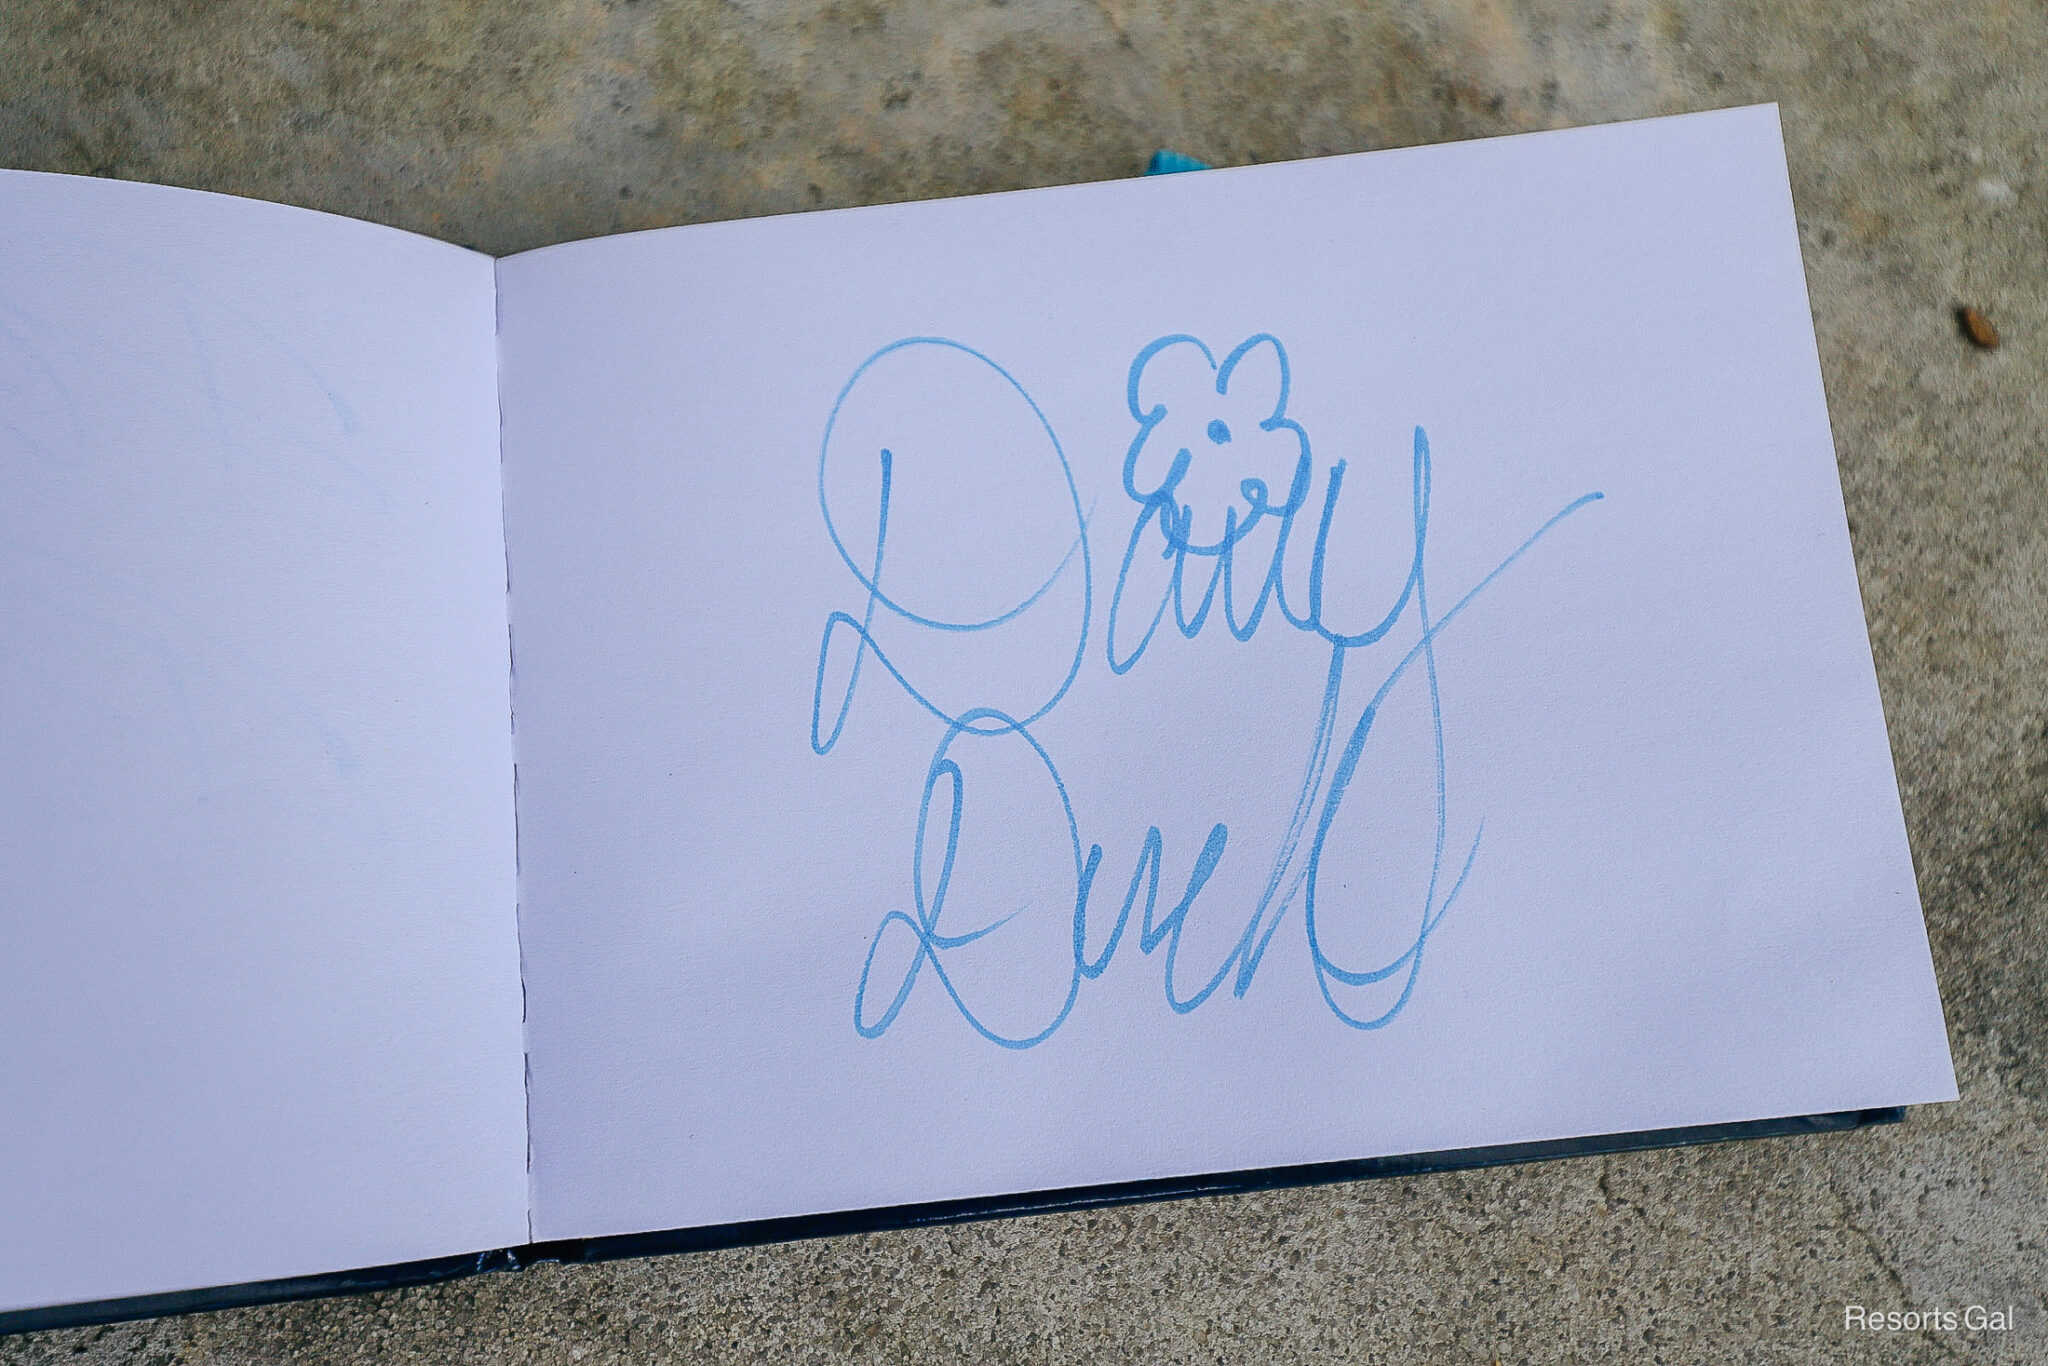 Daisy
Duck
Resorts Gal